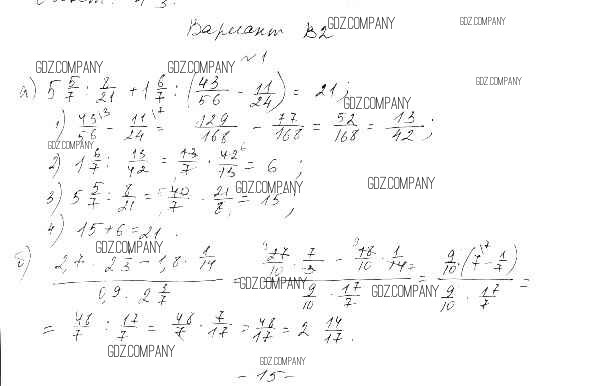 Вариант В2 GDZ.COMPANY GDZ.COMPANY
№1
GDZ.COMPANY GDZ.COMPANY GDZ.COMPANY
а) 5 5/7 : 8/21 + 1 6/7 : (43/56 - 11/24) = 21;
GDZ.COMPANY
1) 43/56 - 11/24 = 129/168 - 77/168 = 52/168 = 13/42;
GDZ.COMPANY
2) 1 6/7 : 13/42 = 13/7 · 42/13 = 6;
GDZ.COMPANY GDZ.COMPANY
3) 5 5/7 : 8/21 = 40/7 · 21/8 = 15;
4) 15+6=21.
GDZ.COMPANY
б) (2,7 · 2 3 - 1,8 · 1/14) / (0,9 · 2 3/7) = (27/10 · 7/3 - 18/10 · 1/14) / (9/10 · 17/7) = (9/10 · (7 - 1/7)) / (9/10 · 17/7) =
GDZ.COMPANY GDZ.COMPANY
= 48/7 : 17/7 = 48/7 · 7/17 = 48/17 = 2 14/17.
GDZ.COMPANY GDZ.COMPANY
- 15 -